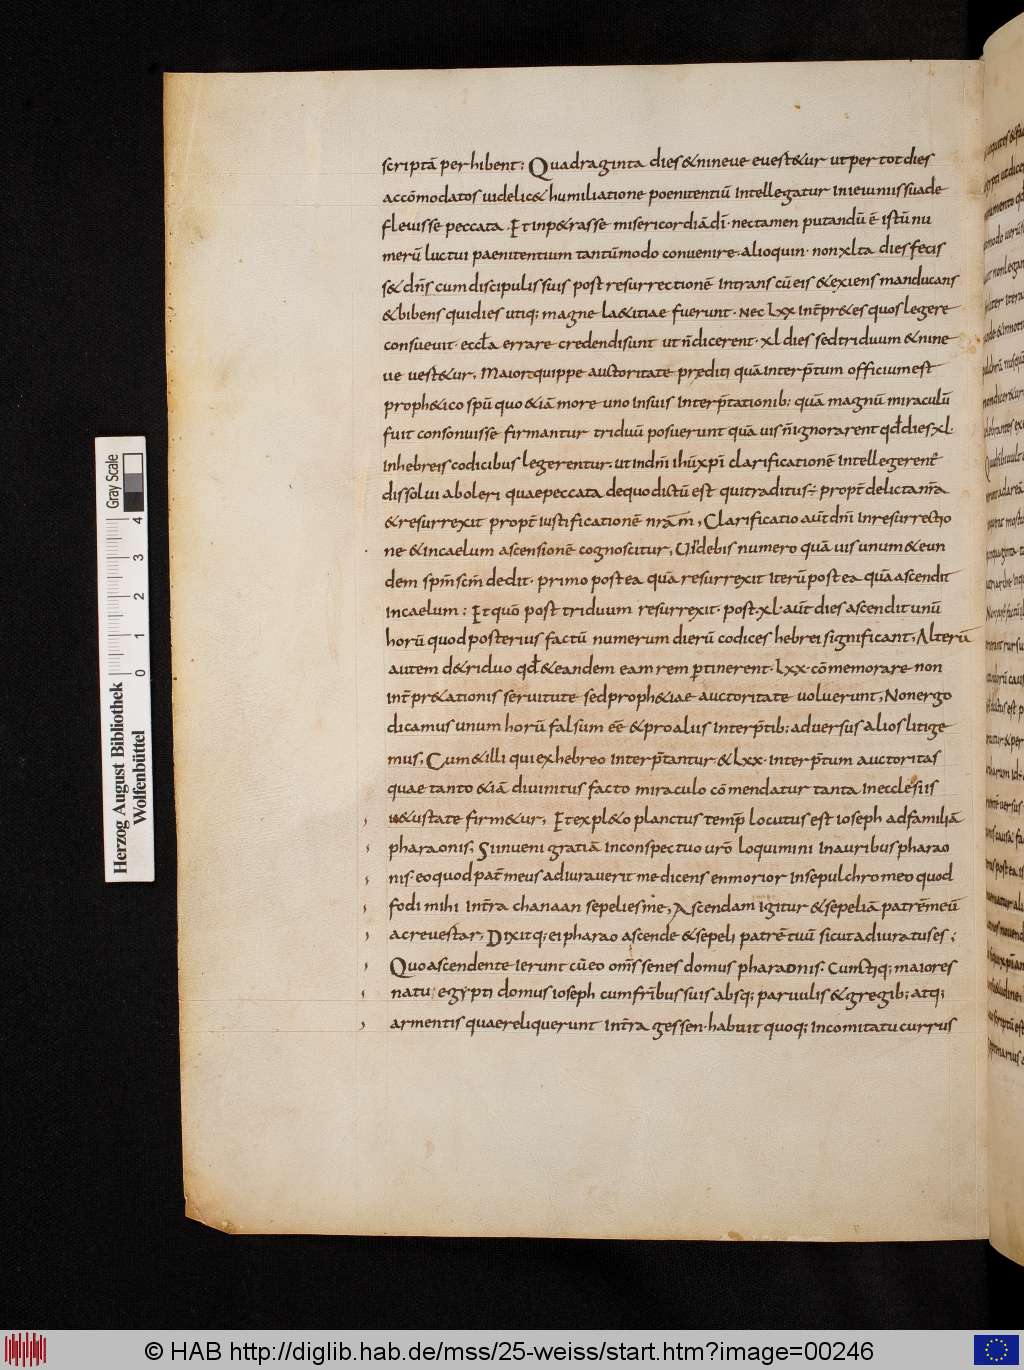 scriptā perhibent: Quadraginta dies & nineue euest&ur ut per tot dies
accōmodatos uidelic& humiliatione poenitentiū intellegatur inieiuniis sua de
fleuisse peccata. Et inp&rasse misericordiā dī· nec tamen putandū ē istū nu
merū luctui paenitentium tantūmodo conuenire. alioquin· non xlta dies fecis
s& dn̄s cum discipulis suis post resurrectionē intrans cū eis & exiens manducans
& bibens qui dies utiq; magne la&itiae fuerunt· nec lxx int̄pr&es quos legere
consueuit· eccl̄a errare credendi sunt ut n̄ dicerent· xl dies sed triduum & nine
ue uest&ur, maior quippe auctoritate prediti quā interp̄tum officium est
proph&ico spū quo &iā more uno in suis interp̄tationib; quā magnū miraculū
fuit consonuisse firmantur triduū posuerunt quā uis n̄ ignorarent qd̄ dies·xl·
in hebreis codicibus legerentur. ut in dn̄i ihū xp̄i clarificationē intellegerent
dissolui aboleri quae peccata de quo dictū est qui traditus: propt̄ delicta nr̄a
& resurrexit propt̄ iustificationē nrām, Clarificatio aut̄ dn̄i in resurrectio
ne & in caelum ascensionē cognoscitur, Uidebis numero quā uis unum & eun
dem spm̄ scm̄ dedit· primo postea quā resurrexit iterū postea quā ascendit
in caelum: Et quō post triduum resurrexit· post·xl·aut̄ dies ascendit unū
horū quod posterius factū numerum dierū codices hebrei significant, Alterū
autem d& riduo qd̄ & eandem eam rem p̄tinerent· lxx· cōmemorare non
int̄pr&ationis seruitute sed proph&iae auctoritate uoluerunt, Non ergo
dicamus unum horū falsum ēē & pro aliis interp̄tib; aduersus alios litige
mus, Cum & illi qui ex hebreo interp̄tantur & lxx· interp̄tum auctoritas
quae tanto &iā diuinitus facto miraculo cōmendatur tanta in ecclesiis
u&ustate firm&ur, Et expl&o planctus temp̄ locutus est ioseph ad familiā
pharaonis, Si inueni gratiā in conspectu uro loquimini in auribus pharao
nis· eo quod pat̄ meus adiurauerit me dicens en morior in sepulchro meo quod
fodi mihi int̄ra chanaan sepelies me, Ascendam igitur & sepeliā patrē meū
ac reuestar, Dixitq; ei pharao ascende & sepeli patrē tuū sicut adiuratus es;
Quo ascendente ierunt cū eo om̄s senes domus pharaonis· Cunctiq; maiores
natu egypti domus ioseph cum fr̄ibus suis absq; paruulis & gregib; atq;
armentis quae reliquerunt int̄ra gessen· habuit quoq; in comitatu currus
Herzog August Bibliothek
Wolfenbüttel
Gray Scale
0 1 2 3 4
© HAB http://diglib.hab.de/mss/25-weiss/start.htm?image=00246